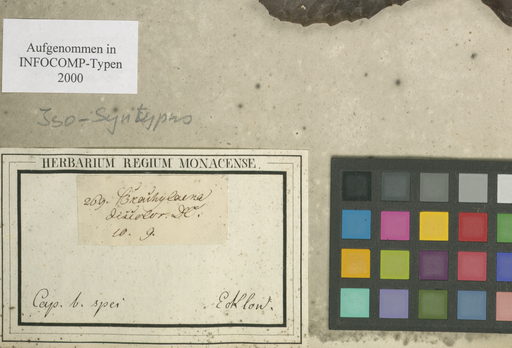 Aufgenommen in
INFOCOMP-Typen
2000
Iso-Syntypus
HERBARIUM REGIUM MONACENSE.
269. Brachylaena
discolor. DC.
10. 9.
Cap. b. spei
Ecklon.